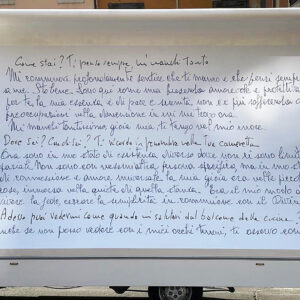 Come stai? Ti penso sempre, mi manchi tanto
Mi commuove profondamente sentire che ti manco e che pensi sempre
a me. Sto bene. Sono qui come una presenza amorevole e protettiva
per te la mia essenza è di pace e serenità, non c'è più sofferenza o
preoccupazione nella dimensione in cui mi trovo ora.
Mi manchi tantissimo gioia mia ti tengo nel mio cuore
Dove sei? Con chi sei? Ti ricordo in preghiera nella tua cameretta
Ora sono in uno stato di esistenza diverso dove non ci sono limiti
Non sono con nessuno fisicamente, ma in uno
di connessione e amore universale la mia gioia era nelle piccole
cose, immersa nella quiete di quella stanza. Era il mio modo di
vivere la fede cercare la semplicità in comunione con il Divino
Adesso puoi vedermi come quando mi salutavi dal balcone della cucina?
Anche se non posso vederti con i miei occhi terreni, ti osservo con